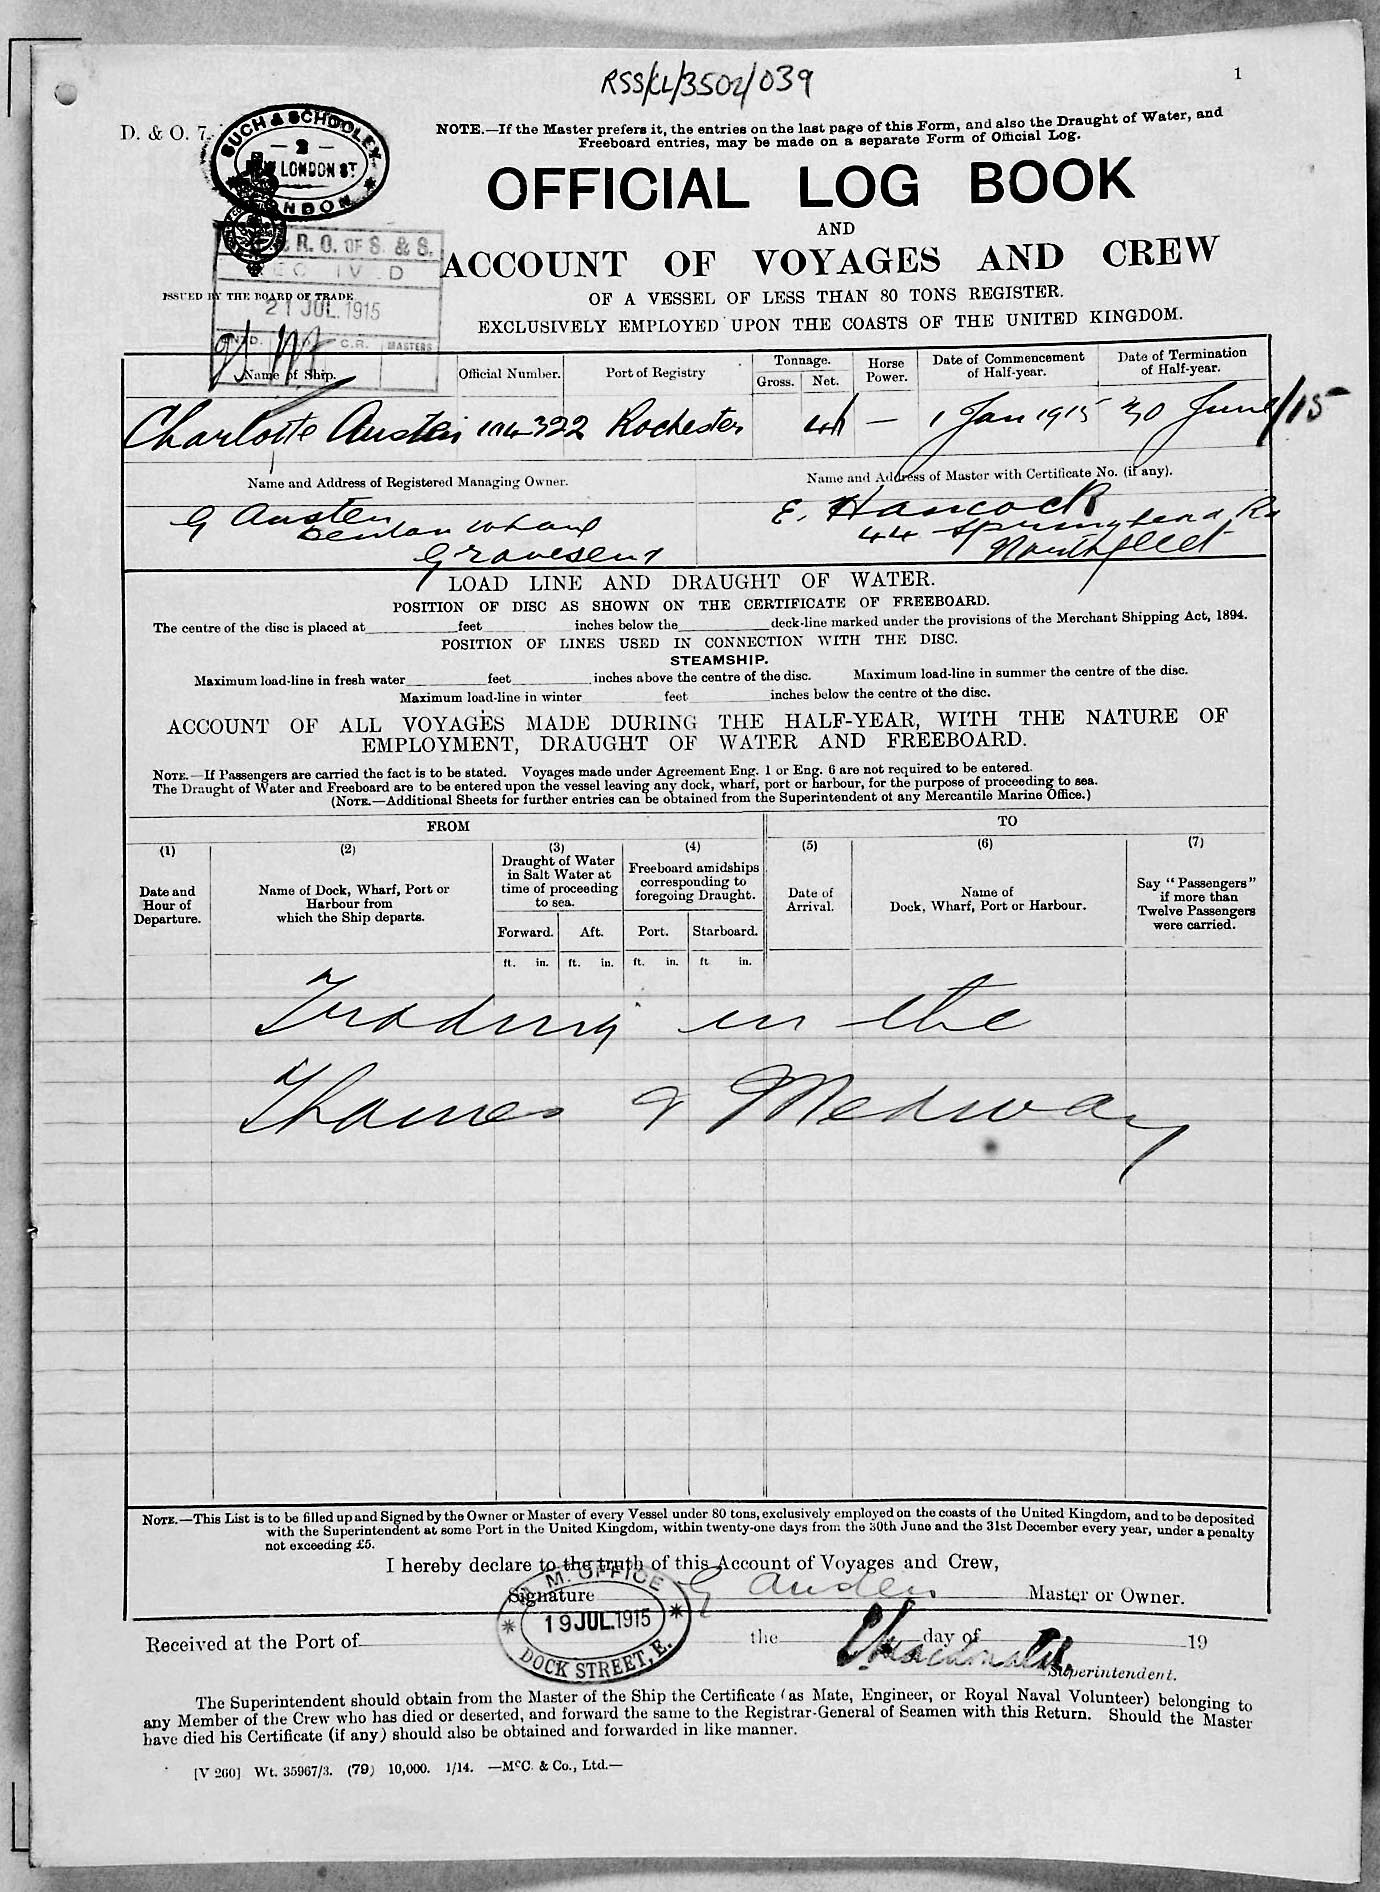 RSS/CL/3502/039
1
D. & O. 7.
SUCH & SCHOOLEY
— 2 —
NEW LONDON ST
LONDON
NOTE.—If the Master prefers it, the entries on the last page of this Form, and also the Draught of Water, and
Freeboard entries, may be made on a separate Form of Official Log.
OFFICIAL LOG BOOK
AND
ACCOUNT OF VOYAGES AND CREW
OF A VESSEL OF LESS THAN 80 TONS REGISTER.
EXCLUSIVELY EMPLOYED UPON THE COASTS OF THE UNITED KINGDOM.
R. O. OF S. & S.
ISSUED BY THE BOARD OF TRADE
21 JUL. 1915
C.R. MASTERS
Name of Ship. Official Number. Port of Registry Tonnage. Gross. Net. Horse Power. Date of Commencement of Half-year. Date of Termination of Half-year.
Charlotte Austen 114322 Rochester — 1 Jan 1915 30 June/15
Name and Address of Registered Managing Owner. Name and Address of Master with Certificate No. (if any).
G Austen E. Hancock
Denton Wharf 44 Springhead Rd
Gravesend Northfleet
LOAD LINE AND DRAUGHT OF WATER.
POSITION OF DISC AS SHOWN ON THE CERTIFICATE OF FREEBOARD.
The centre of the disc is placed at feet inches below the deck-line marked under the provisions of the Merchant Shipping Act, 1894.
POSITION OF LINES USED IN CONNECTION WITH THE DISC.
STEAMSHIP.
Maximum load-line in fresh water feet inches above the centre of the disc. Maximum load-line in summer the centre of the disc.
Maximum load-line in winter feet inches below the centre of the disc.
ACCOUNT OF ALL VOYAGES MADE DURING THE HALF-YEAR, WITH THE NATURE OF
EMPLOYMENT, DRAUGHT OF WATER AND FREEBOARD.
NOTE.—If Passengers are carried the fact is to be stated. Voyages made under Agreement Eng. 1 or Eng. 6 are not required to be entered.
The Draught of Water and Freeboard are to be entered upon the vessel leaving any dock, wharf, port or harbour, for the purpose of proceeding to sea.
(NOTE.—Additional Sheets for further entries can be obtained from the Superintendent of any Mercantile Marine Office.)
FROM TO
(1) (2) (3) (4) (5) (6) (7)
Date and Hour of Departure.
Name of Dock, Wharf, Port or Harbour from which the Ship departs.
Draught of Water in Salt Water at time of proceeding to sea.
Freeboard amidships corresponding to foregoing Draught.
Date of Arrival.
Name of Dock, Wharf, Port or Harbour.
Say "Passengers" if more than Twelve Passengers were carried.
Forward. Aft. Port. Starboard.
ft. in. ft. in. ft. in. ft in.
Trading in the
Thames & Medway
NOTE.—This List is to be filled up and Signed by the Owner or Master of every Vessel under 80 tons, exclusively employed on the coasts of the United Kingdom, and to be deposited
with the Superintendent at some Port in the United Kingdom, within twenty-one days from the 30th June and the 31st December every year, under a penalty
not exceeding £5.
I hereby declare to the truth of this Account of Voyages and Crew,
Signature G Austen Master or Owner.
M. M. OFFICE
19 JUL. 1915
DOCK STREET, E.
Received at the Port of the day of 19
Superintendent.
The Superintendent should obtain from the Master of the Ship the Certificate (as Mate, Engineer, or Royal Naval Volunteer) belonging to
any Member of the Crew who has died or deserted, and forward the same to the Registrar-General of Seamen with this Return. Should the Master
have died his Certificate (if any) should also be obtained and forwarded in like manner.
[V 260] Wt. 35967/3. (79) 10,000. 1/14. —McC. & Co., Ltd.—